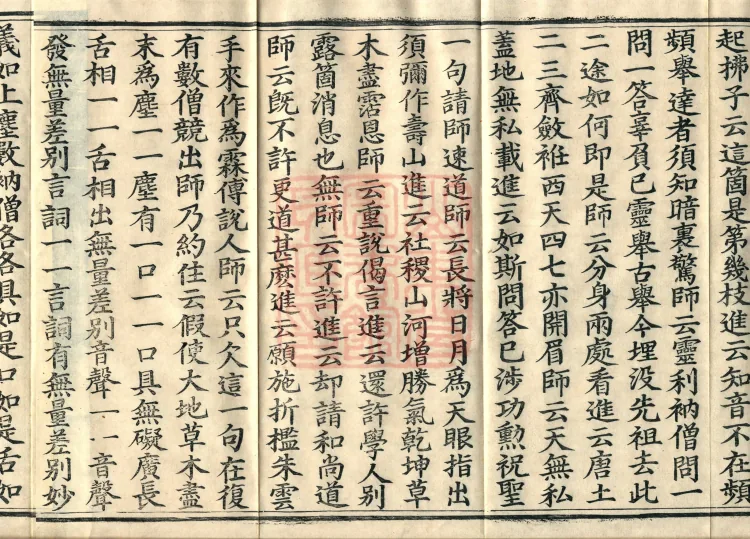 起拂子云這箇是第幾枝進云知音不在頻
頻舉達者須知暗裏驚師云靈利衲僧問一
問一答辜負已靈舉古舉今埋没先祖去此
二途如何即是師云分身兩處看進云唐土
二三齊斂袵西天四七亦開眉師云天無私
蓋地無私載進云如斯問答已涉功勳祝聖
一句請師速道師云長將日月為天眼指出
須彌作壽山進云社稷山河增勝氣乾坤草
木盡霑恩師云重說偈言進云還許學人別
露箇消息也無師云不許進云却請和尚道
師云既不許更道甚麼進云願施折檻朱雲
手來作為霖傅說人師云只欠這一句在復
有數僧競出師乃約住云假使大地草木盡
末為塵一一塵有一口一一口具無礙廣長
舌相一一舌相出無量差別音聲一一音聲
發無量差別言詞一一言詞有無量差別妙
義如上塵數衲僧各各具如是口如是舌如